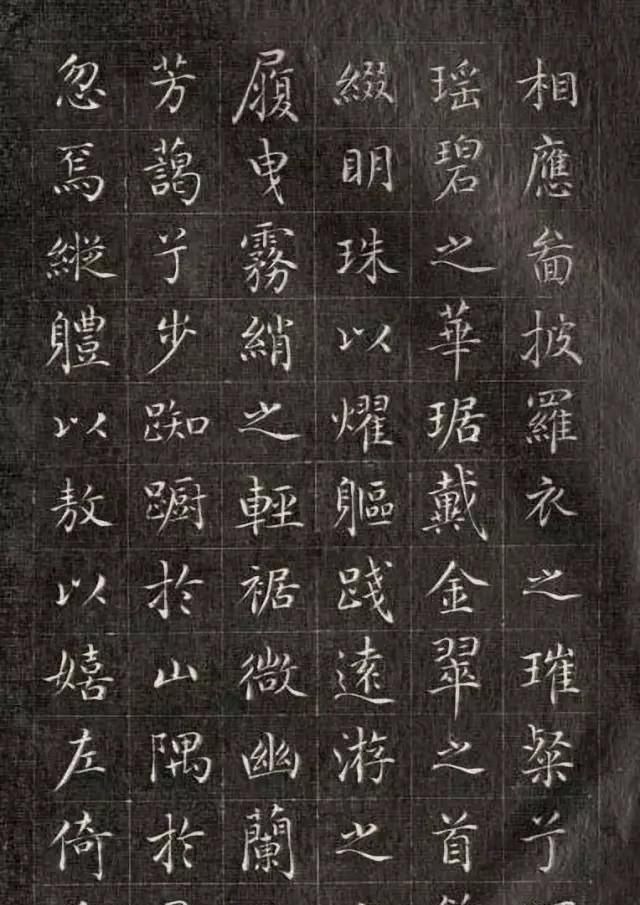 相應啚披羅衣之璀粲兮
瑤碧之華琚戴金翠之首
綴明珠以燿軀踐遠游之
履曳霧綃之輕裾微幽蘭
芳藹兮步踟蹰於山隅於
忽焉縱軆以敖以嬉左倚